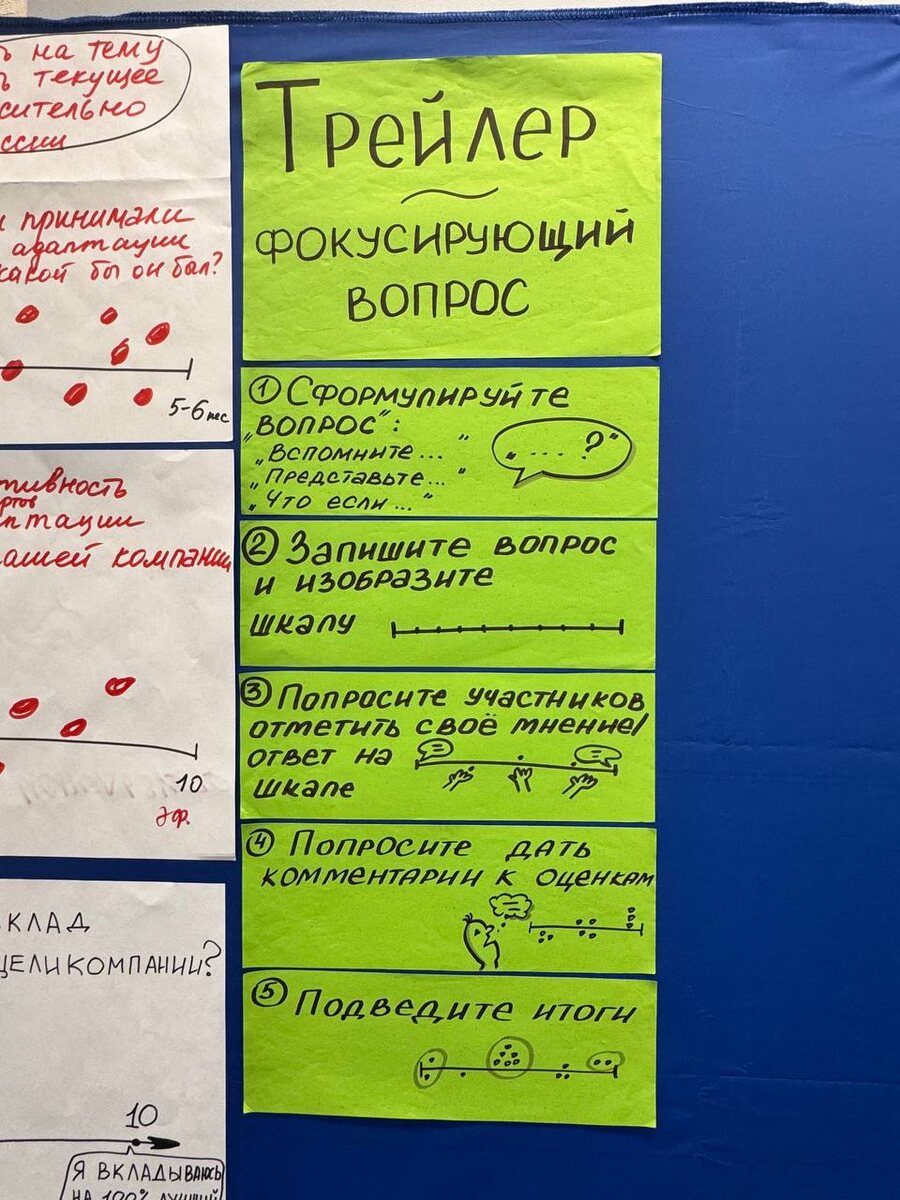 на тему
текущее
ссии
принимали
адаптации
какой бы он был?
5-6 мес
тивность
ртов
птации
ашей компании
10
эф.
КЛАД
ЦЕЛИ КОМПАНИИ?
10
Я ВКЛАДЫВАЮСЬ
НА 100%
Трейлер
~
фокусирующий
вопрос
① Сформулируйте
„вопрос“:
„Вспомните... "
„Представьте... "
„Что если ... "
„ .... ?“
② Запишите вопрос
и изобразите
шкалу
③ Попросите участников
отметить своё мнение/
ответ на
шкале
④ Попросите дать
комментарии к оценкам
⑤ Подведите итоги